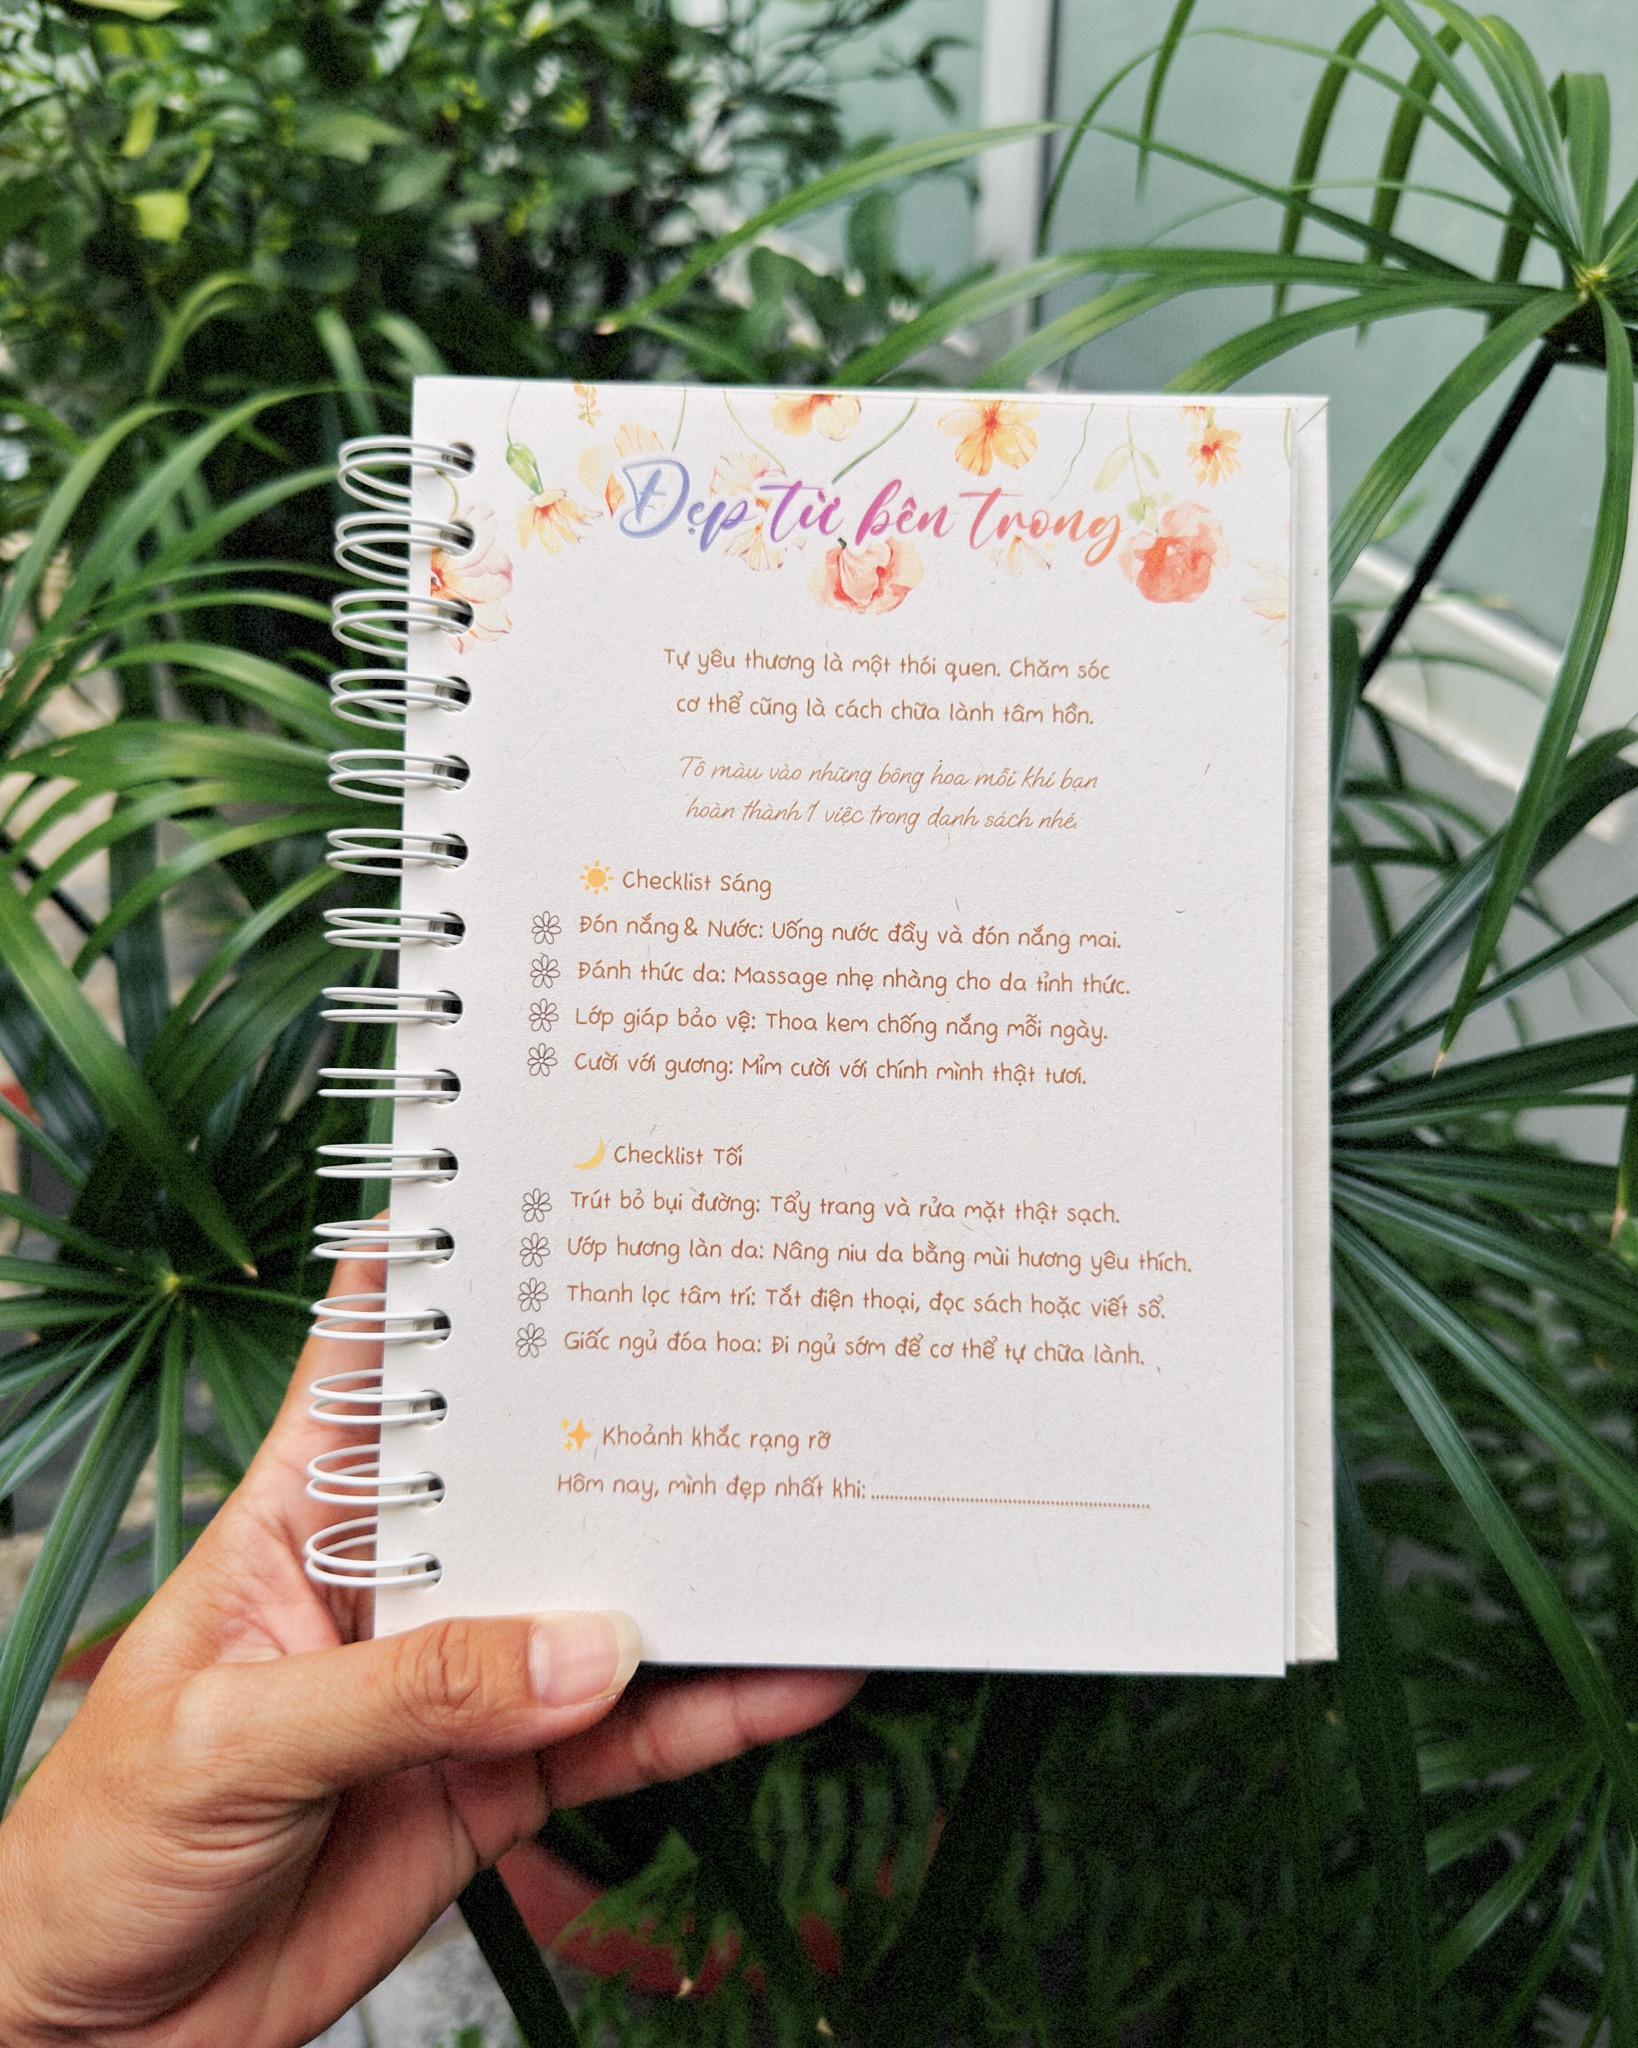 Đẹp từ bên trong
Tự yêu thương là một thói quen. Chăm sóc
cơ thể cũng là cách chữa lành tâm hồn.
Tô màu vào những bông hoa mỗi khi bạn
hoàn thành 1 việc trong danh sách nhé.
Checklist Sáng
Đón nắng & Nước: Uống nước đầy và đón nắng mai.
Đánh thức da: Massage nhẹ nhàng cho da tỉnh thức.
Lớp giáp bảo vệ: Thoa kem chống nắng mỗi ngày.
Cười với gương: Mỉm cười với chính mình thật tươi.
Checklist Tối
Trút bỏ bụi đường: Tẩy trang và rửa mặt thật sạch.
Ướp hương làn da: Nâng niu da bằng mùi hương yêu thích.
Thanh lọc tâm trí: Tắt điện thoại, đọc sách hoặc viết sổ.
Giấc ngủ đóa hoa: Đi ngủ sớm để cơ thể tự chữa lành.
Khoảnh khắc rạng rỡ
Hôm nay, mình đẹp nhất khi: